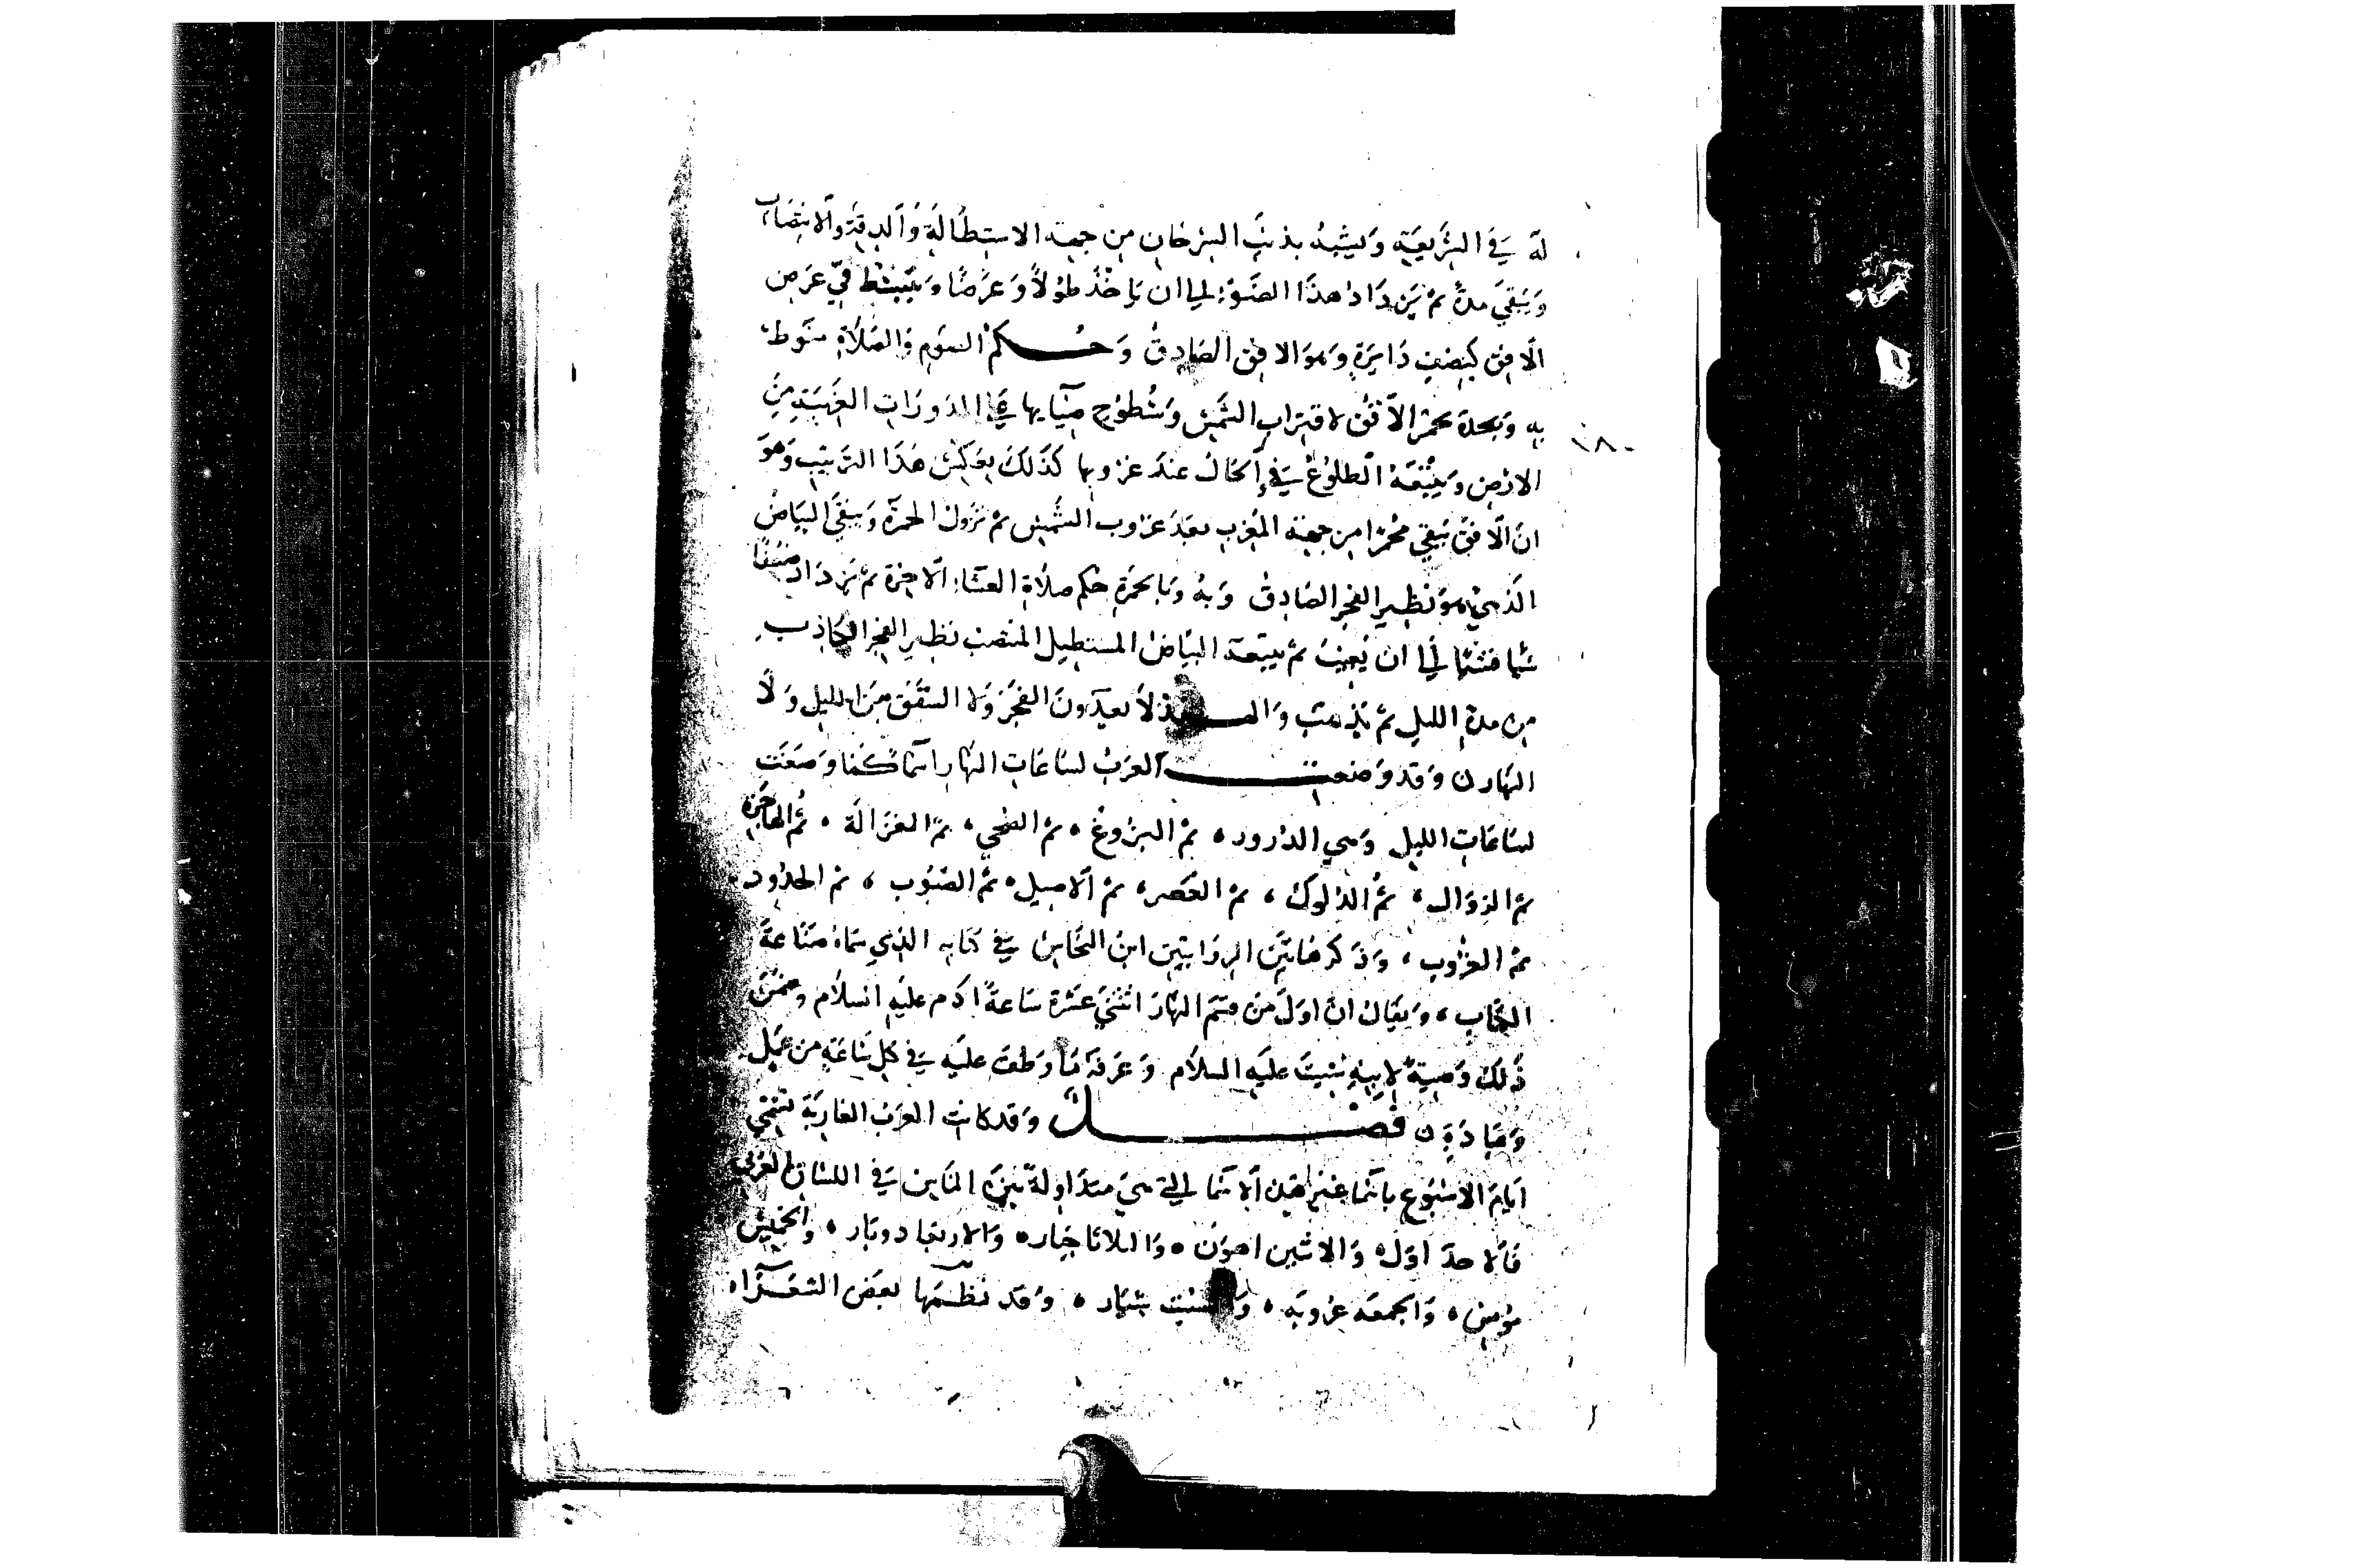 له في الشريعة ويشبه بذنب السرحان من جهة الاستطالة والدقة والانتصاب
ويبقى مدة ثم يزداد هذا الضوء الى ان ياخذ طولا وعرضا وينبسط في عرض
الافق كنصف دايرة وهو الافق الصادق وحكم الصوم والصلاة منوط
به وبعده يحمر الافق لاقتراب الشمس وسطوح ضيايها على المدورات القريبة من
الارض ويتبعه الطلوع في الحال عند غروبها كذلك بعكس هذا الترتيب وهو
ان الافق يبقى محمرا من جهة المغرب بعد غروب الشمس ثم تزول الحمرة ويبقى البياض
الذي هو نظير الفجر الصادق وبه وبالحمرة حكم صلاة العشاء الاخرة ثم يزداد ضعفا
شيا فشيا الى ان يغيب ثم يتبعه البياض المستطيل المنتصب نظير الفجر الكاذب
من مدة الليل ثم يذهب لا يعدون الفجر ولا الشفق من الليل ولا
النهار ن وقد وضعت العرب لساعات النهار اسما كما وضعت
لساعات الليل وهي الدرور ، ثم البزوغ ، ثم الضحي ، ثم الغزالة ، ثم الهاجرة
ثم الزوال ، ثم الدلوك ، ثم العصر ، ثم الاصيل ، ثم الصبوب ، ثم الحدود
ثم الغروب ، وذكر هاتين الروايتين ابن النحاس في كتابه الذي سماه صناعة
الكتاب ، ويقال ان اول من قسم النهار اثنتي عشرة ساعة ادم عليه السلام وضمن
ذلك وصية لابنه شيث عليه السلام وعرفه ما وظف عليه في كل ساعة من عمل
وعبادة ن فصل وقد كانت العرب العاربة تسمي
ايام الاسبوع باسما غير هذه الاسما التي هي متداولة بين الناس في اللسان العربي
فالاحد اول ، والاثنين اهون ، والثلاثا جبار ، والاربعا دبار ، والخميس
مونس ، والجمعه عروبه ، والسبت شيار ، وقد نظمها بعض الشعراء